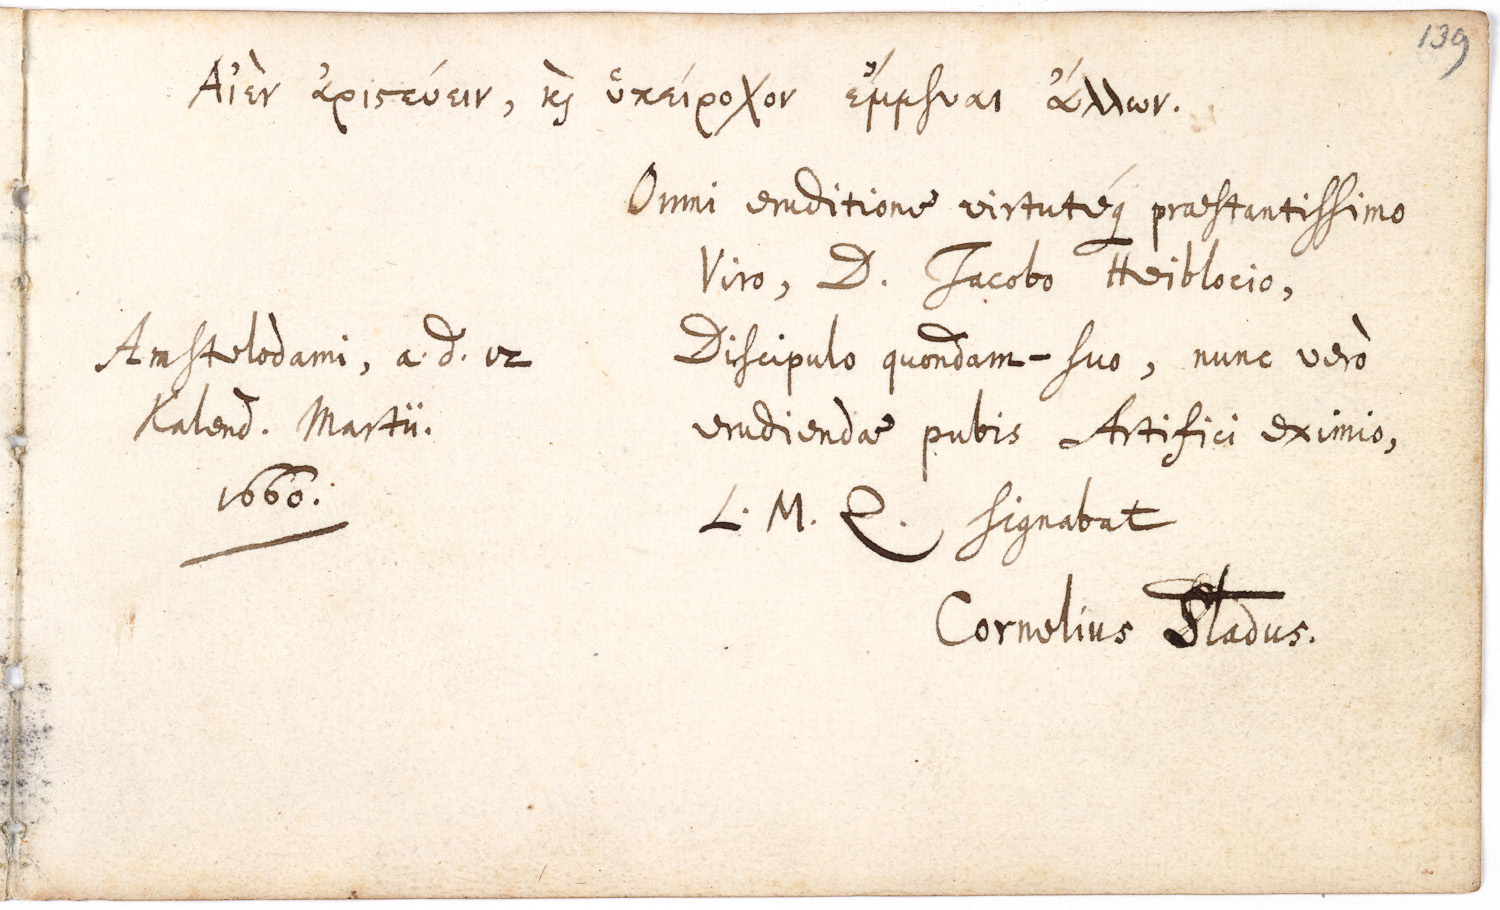 139
Αἰὲν ἀριστεύειν, κὶ ὑπείροχον ἔμμεναι ἄλλων.
Omni eruditione virtutéq praestantissimo
Viro, D. Jacobo Heiblocio,
Discipulo quondam suo, nunc verò
erudiendae pubis Artifici eximio,
L. M. Q. signabat
Cornelius Sladus.
Amstelodami, a. d. VI
Kalend. Martii.
1660.